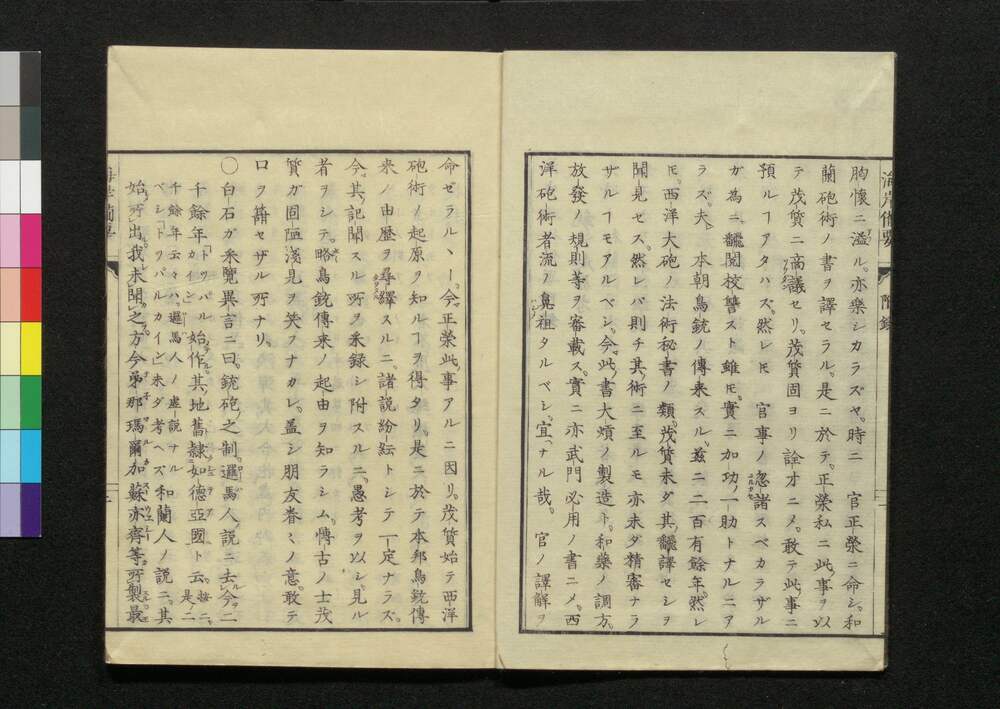 海岸備要 附録
胸懷ニ溢ル。亦樂シカラズヤ。時ニ 官正榮ニ命シ。和
蘭砲術ノ書ヲ譯セラル。是ニ於テ。正榮私ニ此事ヲ以
テ茂質ニ高議セリ。茂質固ヨリ詮オニメ。敢テ此事ニ
預ルヿアタハズ。然レ𪜈 官事ノ忽諸スベカラザル
ガ為ニ。飜閲校讐スト雖𪜈。實ニ加功ノ一助トナルニア
ラズ。夫レ 本朝鳥銃ノ傳来スル。茲ニ二百有餘年。然レ
𪜈。西洋大砲ノ法術秘書ノ類。茂質未ダ其飜譯セシヲ
聞見セス。然レバ則チ其術ニ至ルモ亦未ダ精審ナラ
ザルヿモアルベシ。今此書大熕ノ製造ト。和藥ノ調方。
放發ノ規則等ヲ審載ス。實ニ亦武門必用ノ書ニメ。西
洋砲術者流ノ鼻祖タルベシ。宜ナル哉。 官ノ譯解ヲ
命ゼラルヽヿ。今正榮此事アルニ因リ。茂質始テ西洋
砲術ノ起原ヲ知ルヿヲ得タリ。是ニ於テ本邦鳥銃傳
来ノ由歴ヲ尋繹スルニ。諸説紛紜トシテ一定ナラズ。
今其記聞スル所ヲ采録シ附スルニ。愚考ヲ以シ。見ル
者ヲシテ。略鳥銃傳来ノ起由ヲ知ラシム。博古ノ士茂
質ガ固陋淺見ヲ笑フナカレ。盖シ朋友眷々ノ意。敢テ
口ヲ籍セザル所ナリ。
〇白石ガ采覽異言ニ曰。銃砲之制。暹馬人説ニ去今二
千餘年「トゥパルカイン」始作。其地舊隷如德亞國ト云。按ニ。是ノ二
千餘年云々ハ。暹馬人ノ虚説ナルベシ。「トゥパルカイン」未ダ考ヘズ。和蘭人ノ説ニ。其
始所出。我未聞之。方今弟那瑪爾加。蘇亦齊等所製最